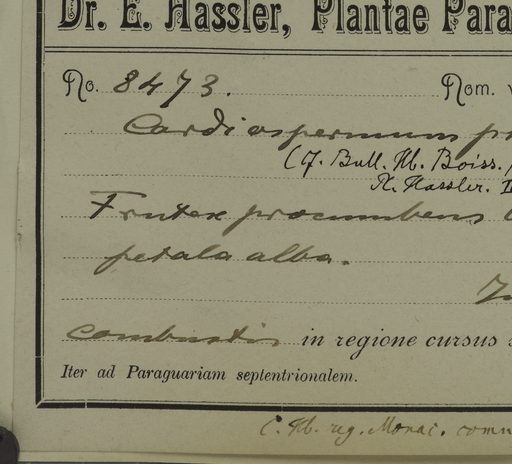 Dr. E. Hassler, Plantae Para
No. 8473. Nom. v
Cardiospermum pr
(Cf. Bull. Hb. Boiss.
Pl. Hassler. I
Frutex procumbens
petala alba.
In
combustis in regione cursus s
Iter ad Paraguariam septentrionalem.
C. Hb. reg. Monac. comm